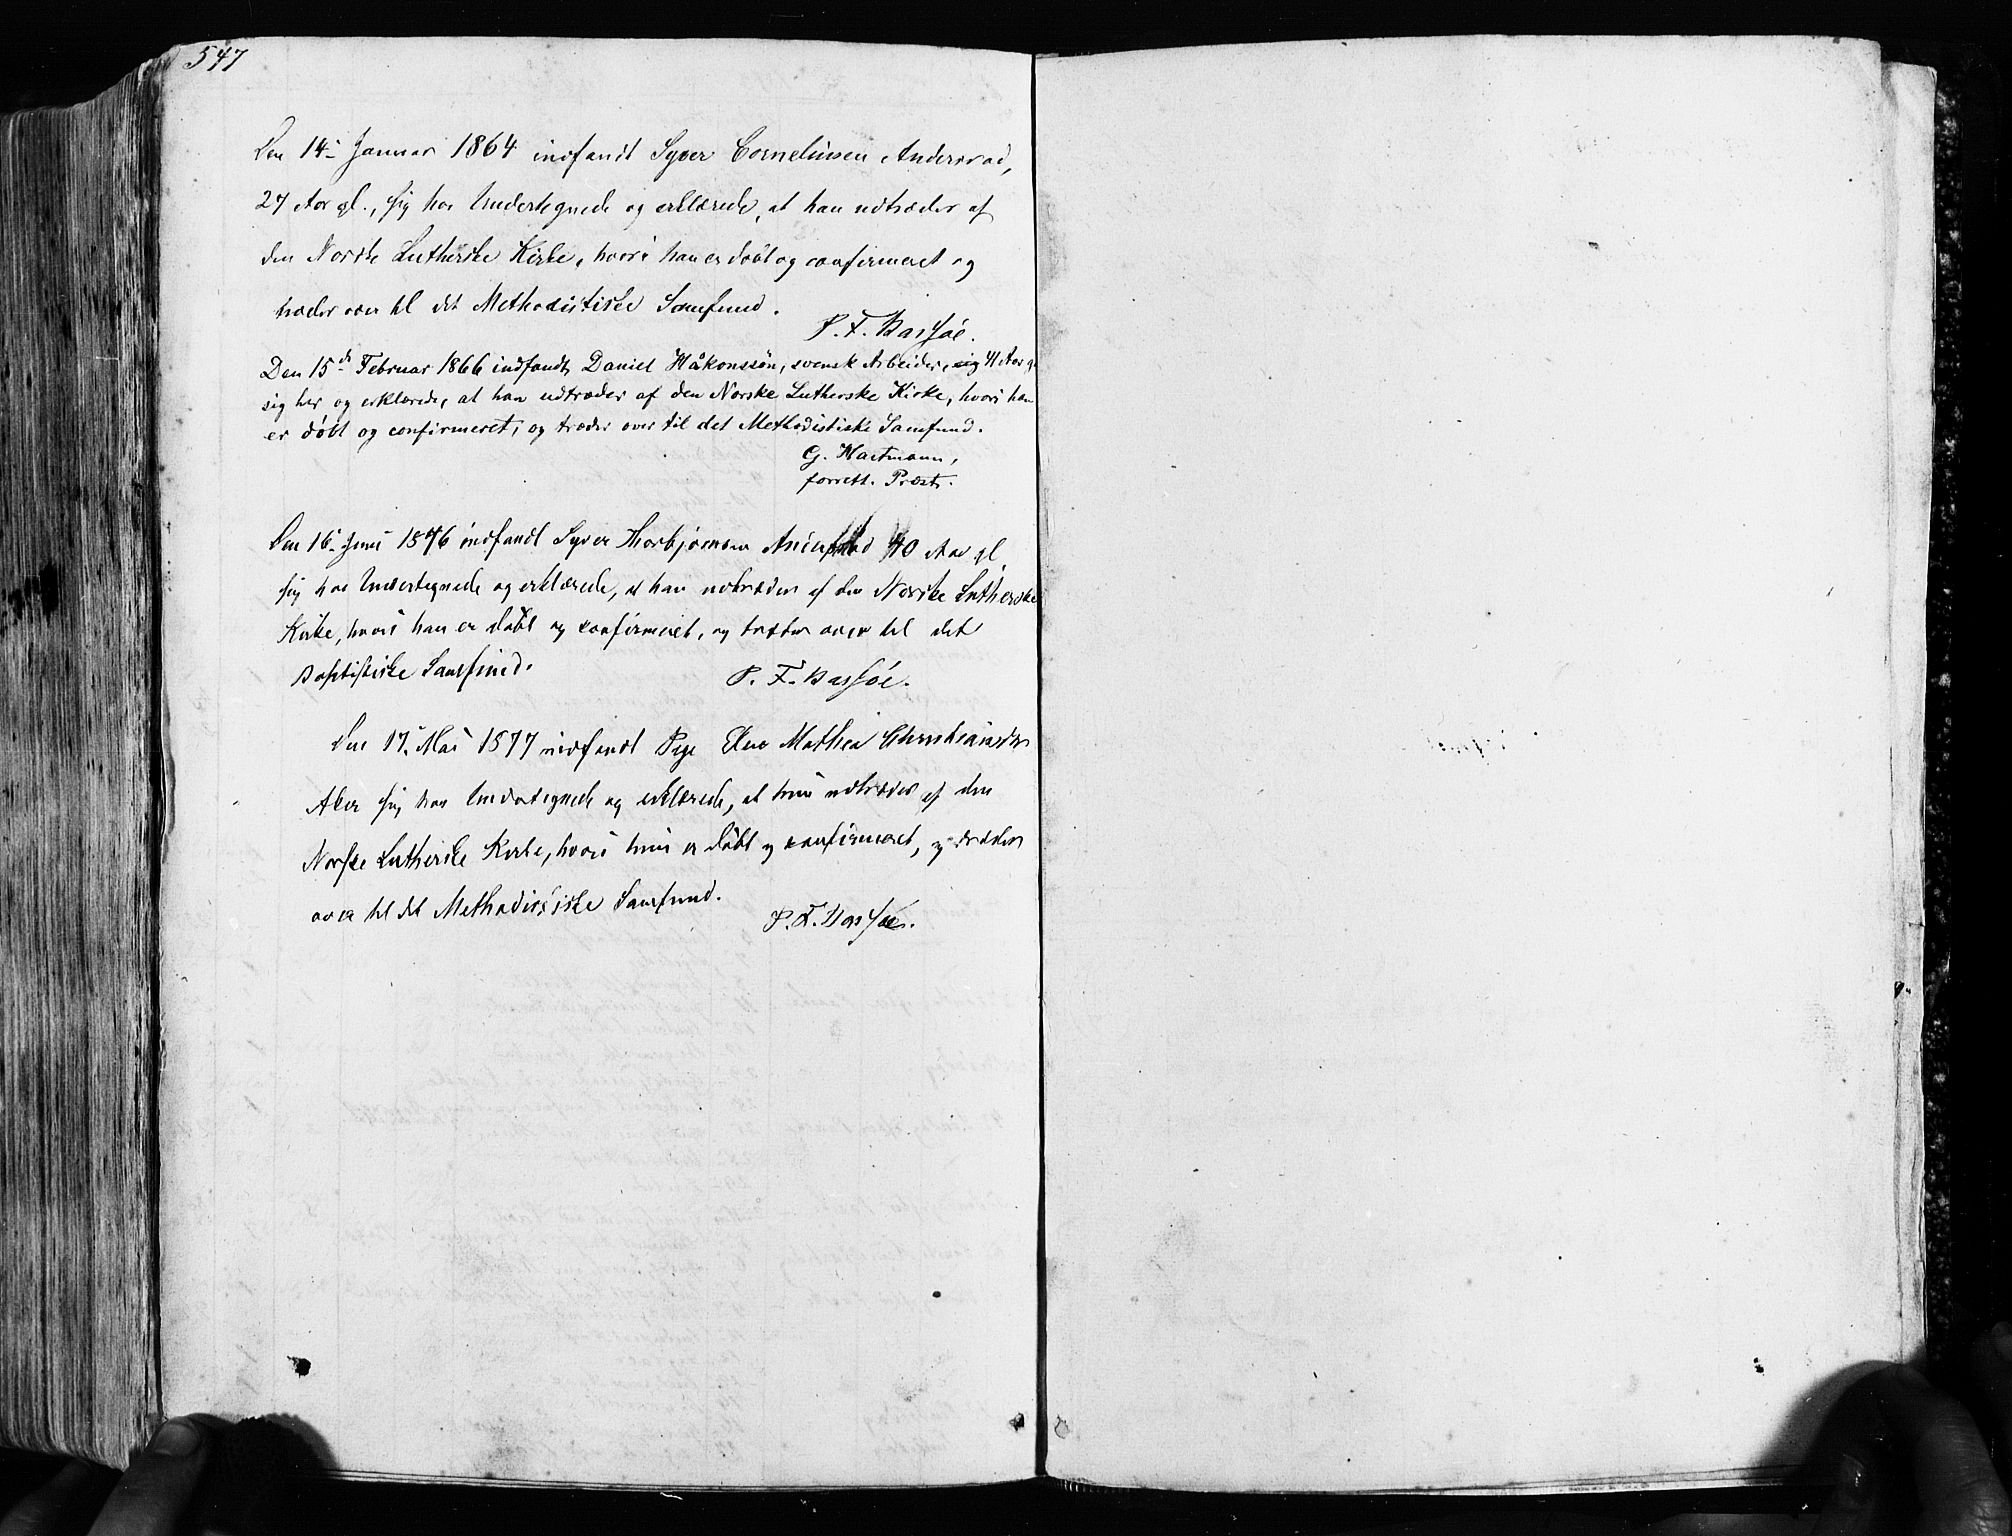 547
Den 14de Januar 1864 indfandt Syver Corneliussen Andersrød,
27 Aar gl., sig hos Undertegnede og erklærede, at han udtræder af
den Norske Lutherske Kirke, hvori han er døbt og confirmeret og
træder over til det Methodistiske Samfund.
P. F. Bassøe.
Den 15de Februar 1866 indfandt Daniel Håkonssön, svensk Arbeider, sig 41 Aar gl
sig her og erklærede, at han udtræder af den Norske Lutherske Kirke, hvori han
er döbt og confirmeret, og træder over til det Methodistiske Samfund.
G. Hartmann,
forrett. Præst.
Den 16de Juni 1876 indfandt Syver Thorbjørnsen 40 Aar gl.
sig hos Undertegnede og erklærede, at han udtræder af den Norske Lutherske
Kirke, hvori han er døbt og confirmeret, og træder over til det
Baptistiske Samfund.
P. F. Bassøe.
Den 17. Mai 1877 indfandt Pige Mathea Christiansdtr
Aker sig hos Undertegnede og erklærede, at hun udtræder af den
Norske Lutherske Kirke, hvori hun er døbt og confirmeret, og træder
over til det Methodistiske Samfund.
P. F. Bassøe.